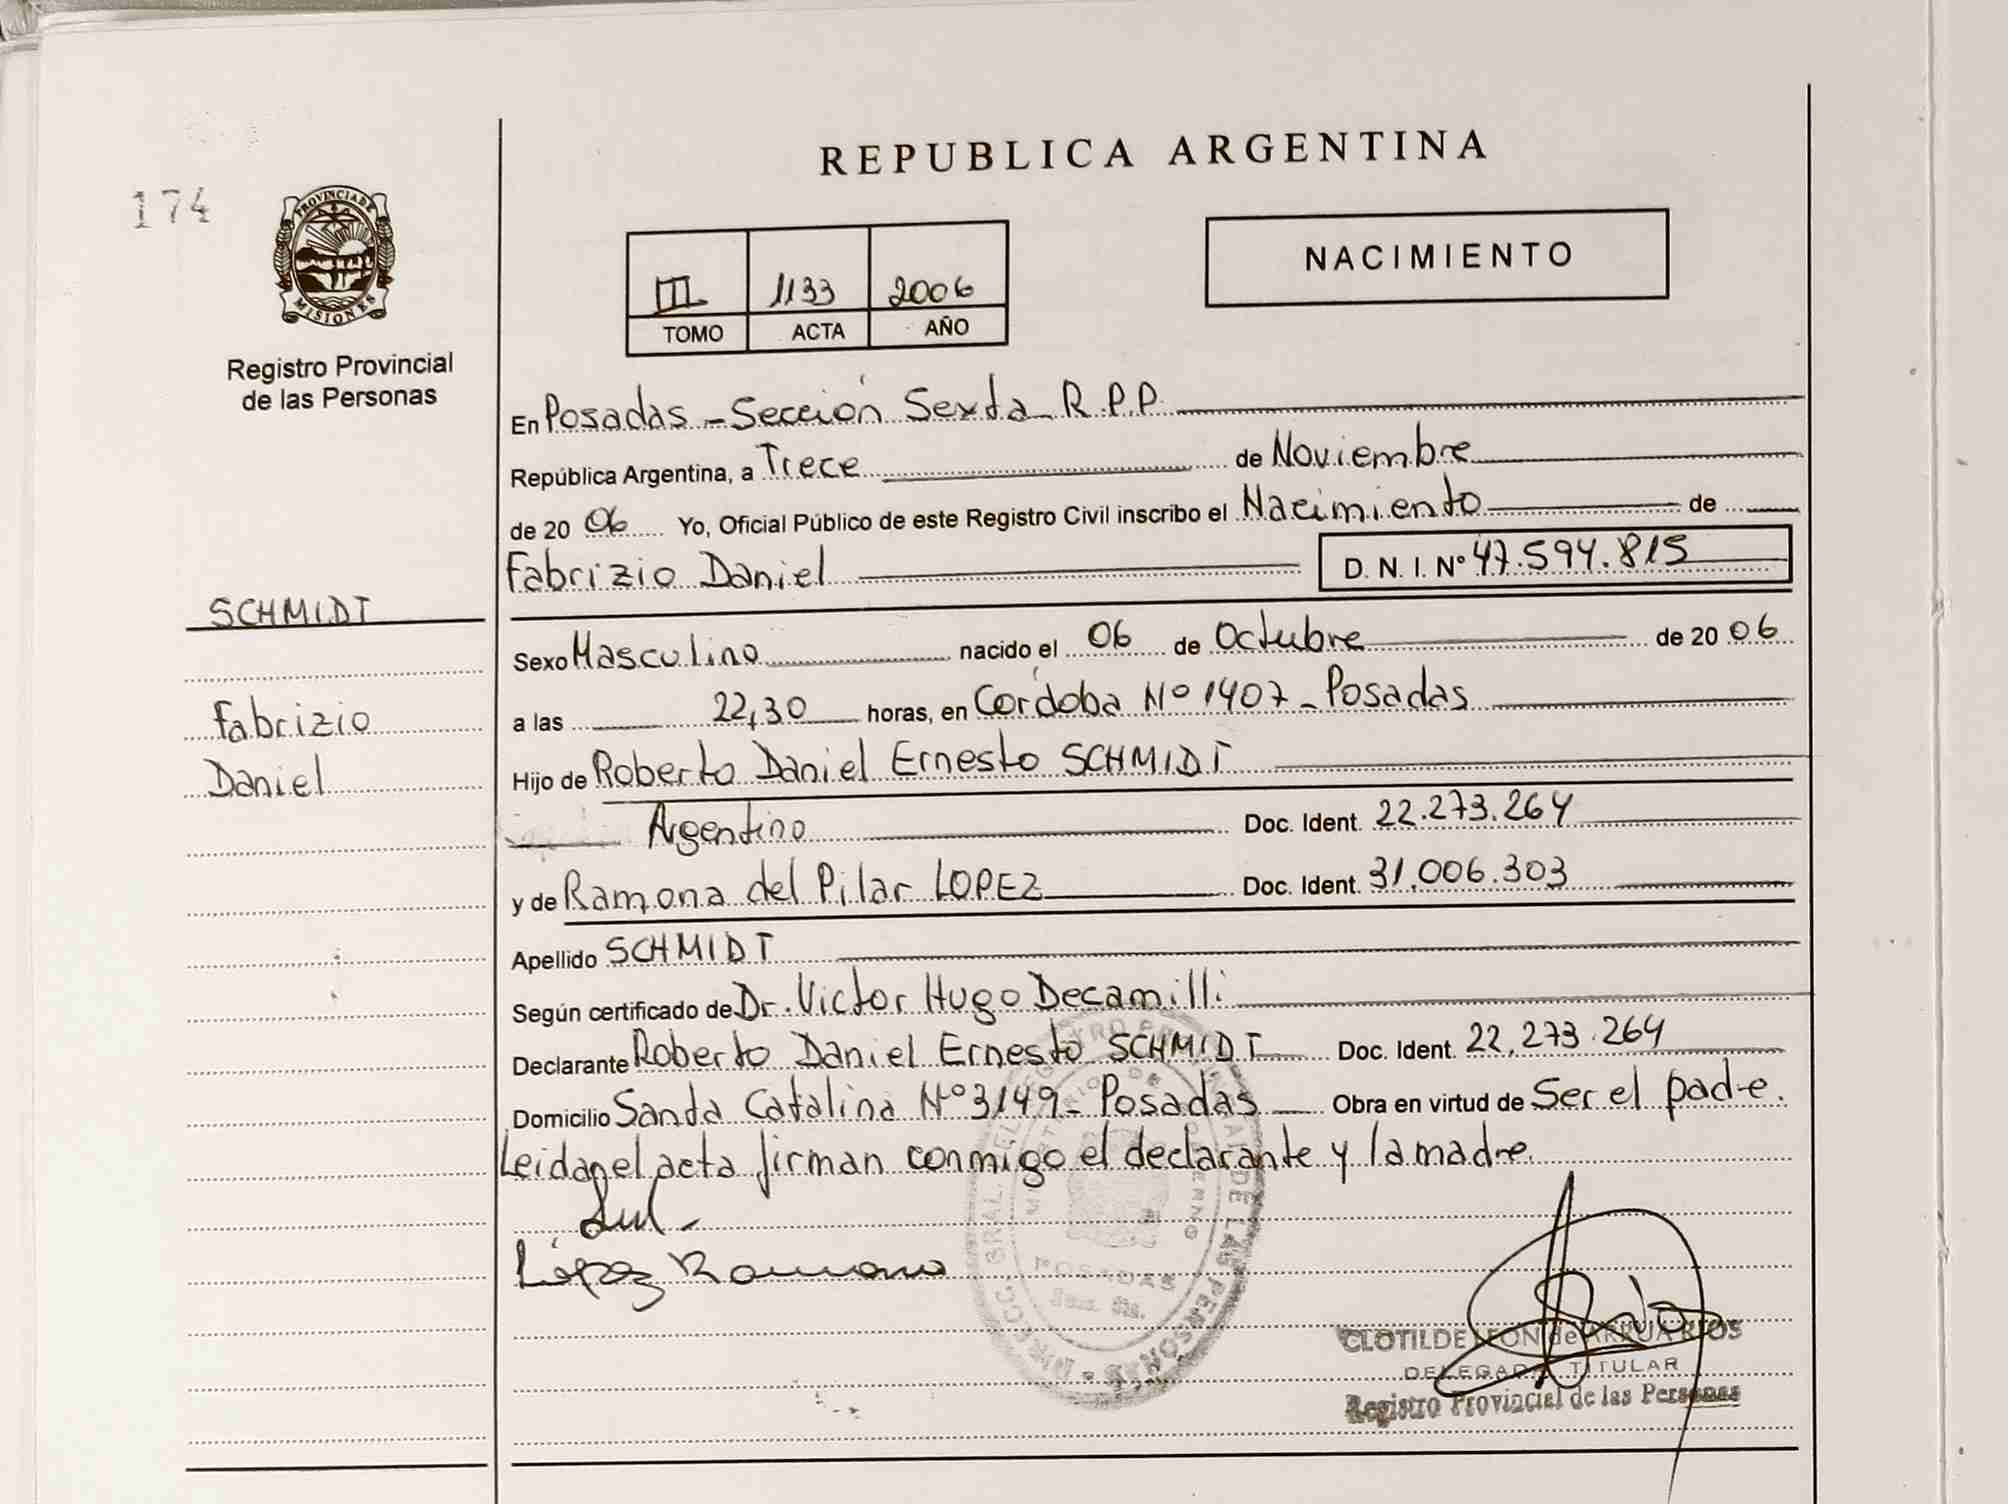 174
PROVINCIA DE
MISIONES
Registro Provincial
de las Personas
SCHMIDT
Fabrizio
Daniel
REPUBLICA ARGENTINA
III 1133 2006
TOMO ACTA AÑO
NACIMIENTO
En Posadas - Sección Sexta R.P.P.
República Argentina, a Trece de Noviembre
de 20 06 Yo, Oficial Público de este Registro Civil inscribo el Nacimiento de
Fabrizio Daniel D. N. I. Nº 47.594.815
Sexo Masculino nacido el 06 de Octubre de 20 06
a las 22,30 horas, en Córdoba Nº 1407 - Posadas
Hijo de Roberto Daniel Ernesto SCHMIDT
Argentino Doc. Ident. 22.273.264
y de Ramona del Pilar LOPEZ Doc. Ident. 31.006.303
Apellido SCHMIDT
Según certificado de Dr. Victor Hugo Decamilli
Declarante Roberto Daniel Ernesto SCHMIDT Doc. Ident. 22.273.264
Domicilio Santa Catalina Nº 3149 - Posadas Obra en virtud de Ser el padre.
Leida el acta firman conmigo el declarante y la madre.
López Ramona
DIRECC. GRAL. DEL REGISTRO PROVINCIAL DE LAS PERSONAS
MINISTERIO DE GOBIERNO
POSADAS
CLOTILDE LEON de ARRUA RIOS
DELEGADA TITULAR
Registro Provincial de las Personas